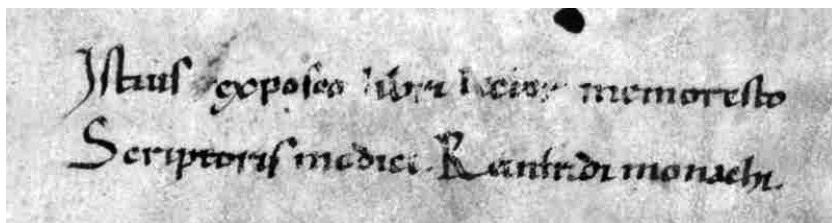 Istius exposco libri lector memoresto
Scriptoris medici. monachi.